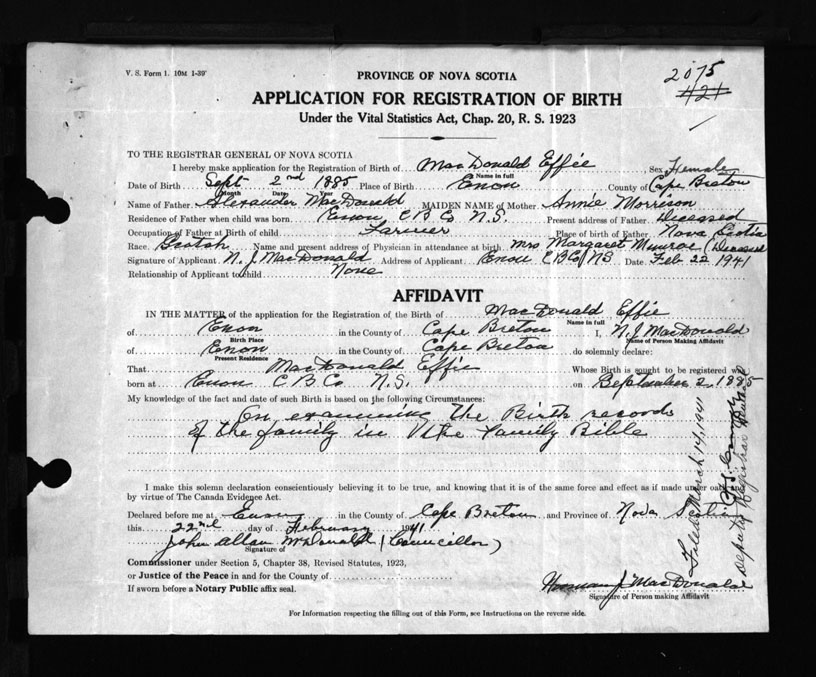 V. S. Form 1. 10M 1-39
2075
421
PROVINCE OF NOVA SCOTIA
APPLICATION FOR REGISTRATION OF BIRTH
Under the Vital Statistics Act, Chap. 20, R. S. 1923
TO THE REGISTRAR GENERAL OF NOVA SCOTIA
I hereby make application for the Registration of Birth of MacDonald Effie Sex Female
Name in Full
Date of Birth Sept 2nd 1885 Place of Birth Enon County of Cape Breton
Month Date Year
Name of Father Alexander MacDonald MAIDEN NAME of Mother Annie Morrison
Residence of Father when child was born Enon, C B Co N.S. Present address of Father Deceased
Occupation of Father at Birth of child Farmer Place of birth of Father Nova Scotia
Race Scotch Name and present address of Physician in attendance at birth Mrs Margaret Munroe (Deceased
Signature of Applicant N. J. MacDonald Address of Applicant Enon C B Co NS Date Feb 22 1941
Relationship of Applicant to child None
AFFIDAVIT
IN THE MATTER of the application for the Registration of the Birth of MacDonald, Effie
Name in full
of Enon in the County of Cape Breton I, N. J. MacDonald
Birth Place Name of Person Making Affidavit
of Enon in the County of Cape Breton do solemnly declare:
Present Residence
That MacDonald Effie Whose Birth is sought to be registered was
born at Enon C B Co. N.S. on September 2, 1885
My knowledge of the fact and date of such Birth is based on the following Circumstances:
On examining the Birth records
of the family in the Family Bible
I make this solemn declaration conscientiously believing it to be true, and knowing that it is of the same force and effect as if made under oath
by virtue of The Canada Evidence Act.
Declared before me at Enon in the County of Cape Breton and Province of Nova Scotia
this 22nd day of February 1941
John Allan McDonald (Councillor)
Signature of
Commissioner under Section 5, Chapter 38, Revised Statutes, 1923,
or Justice of the Peace in and for the County of
If sworn before a Notary Public affix seal.
Norman J. MacDonald
Signature of Person making Affidavit
For Information respecting the filling out of this Form, see Instructions on the reverse side.
Filed March 14, 1941
Deputy Registrar General